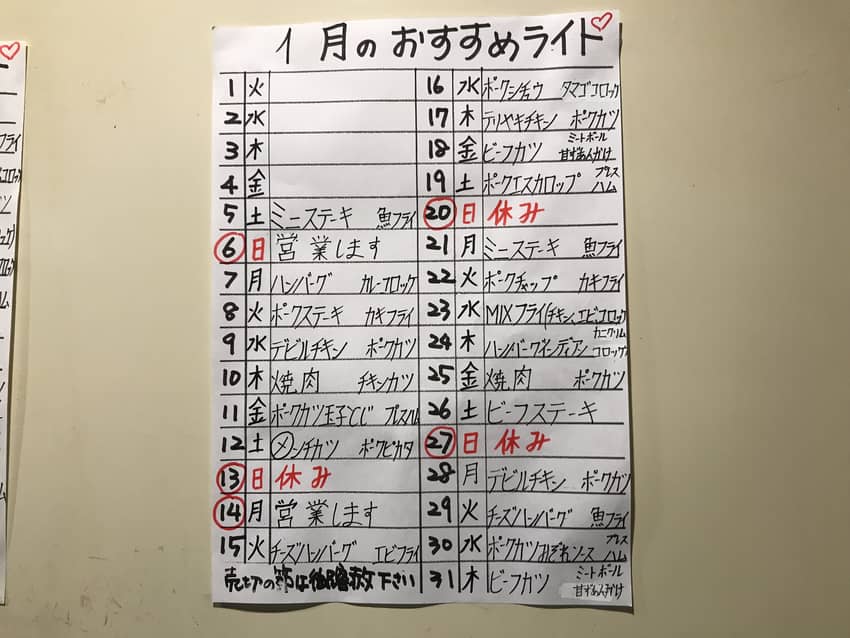 1月のおすすめライト
1 火
2 水
3 木
4 金
5 土 ミニステーキ 魚フライ
6 日 営業します
7 月 ハンバーグ カレーコロッケ
8 火 ポークステーキ カキフライ
9 水 デビルチキン ポークカツ
10 木 焼肉 チキンカツ
11 金 ポークカツ玉子とじ プレスハム
12 土 メンチカツ ポークピカタ
13 日 休み
14 月 営業します
15 火 チーズハンバーグ エビフライ
売切の節は御容赦下さい
16 水 ポークシチュウ タマゴコロッケ
17 木 テリヤキチキン ポークカツ
18 金 ビーフカツ ミートボール甘ずあんかけ
19 土 ポークエスカロップ プレスハム
20 日 休み
21 月 ミニステーキ 魚フライ
22 火 ポークチャップ カキフライ
23 水 MIXフライ(チキン、エビ、コロッケ
24 木 ハンバーグインディアン カニクリームコロッケ
25 金 焼肉 ポークカツ
26 土 ビーフステーキ
27 日 休み
28 月 デビルチキン ポークカツ
29 火 チーズハンバーグ 魚フライ
30 水 ポークカツみぞれソース プレスハム
31 木 ビーフカツ ミートボール甘ずあんかけ